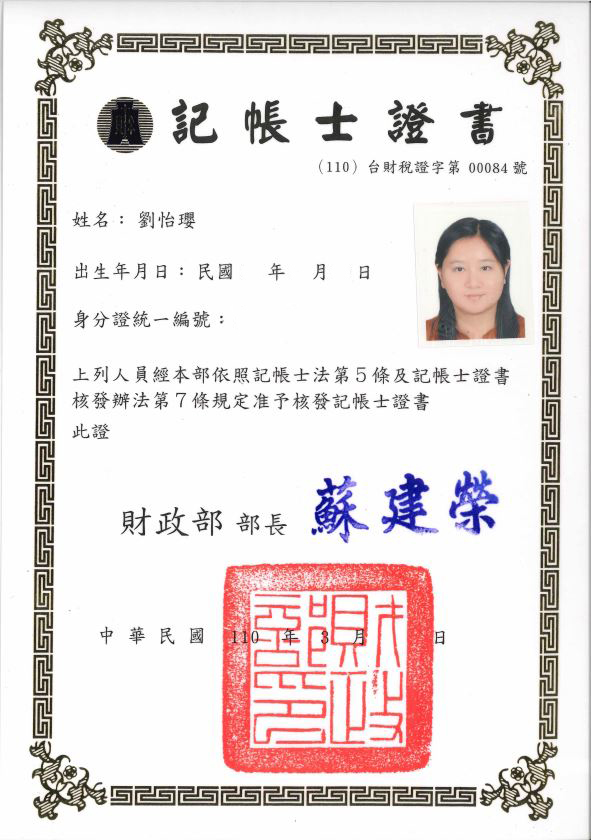 記帳士證書
（110）台財稅證字第 00084 號
姓名：劉怡瓔
出生年月日：民國　年　月　日
身分證統一編號：
上列人員經本部依照記帳士法第5條及記帳士證書
核發辦法第7條規定准予核發記帳士證書
此證
財政部 部長 蘇建榮
財政部印
中華民國 110 年 3 月　日